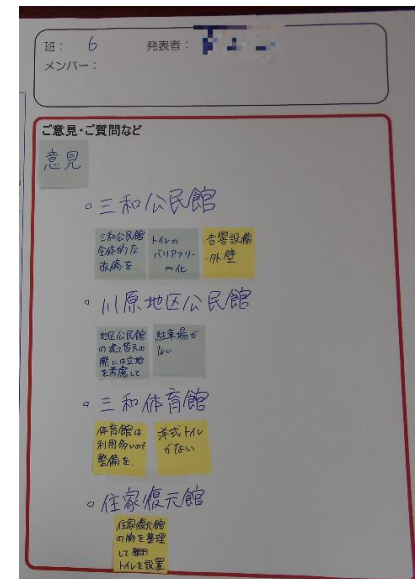 班： 6 発表者：
メンバー：
ご意見・ご質問など
意見
。三和公民館
三和公民館
全体的な
改修を.
トイレの
バリアフリー
化
音響設備
・外壁
。川原地区公民館
地区公民館
の建て替えの
際には立地
を考慮して
駐車場が
ない.
。三和体育館
体育館は
利用多いので
整備を.
洋式トイレ
がない
。住家復元館
住家復元館
の前を整理
して
トイレを設置